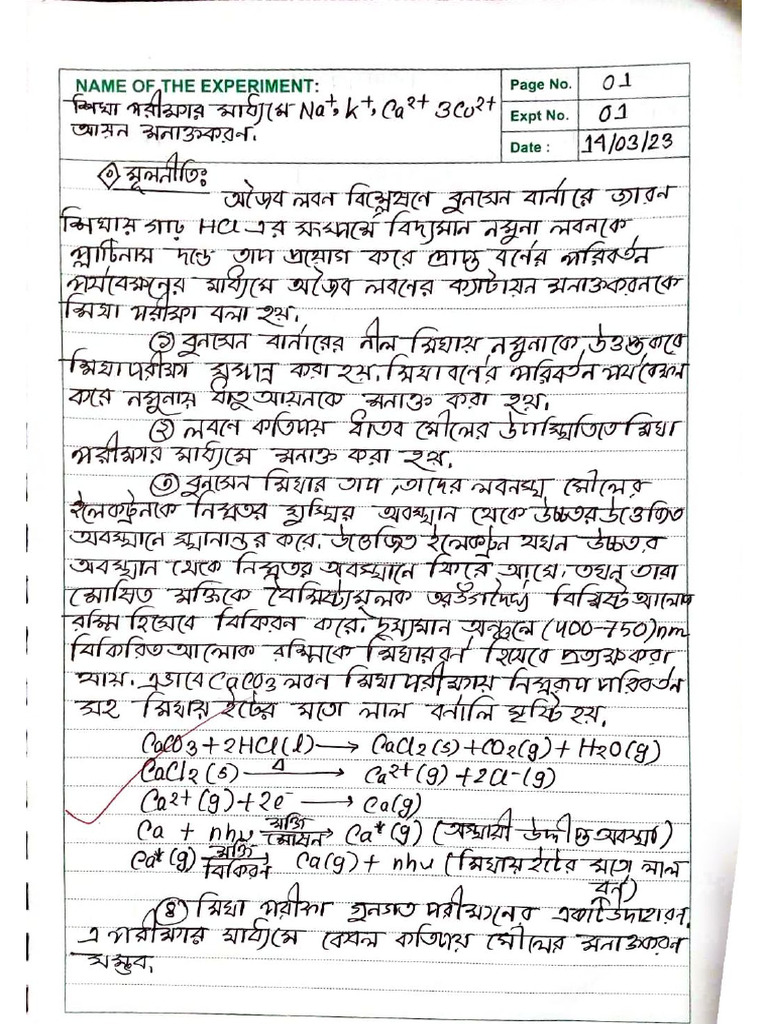 NAME OF THE EXPERIMENT:
Page No. 01
শিখা পরীক্ষার মাধ্যমে Na⁺, K⁺, Ca²⁺ ও Cu²⁺
আয়ন শনাক্তকরণ.
Expt No. 01
Date : 14/03/23
মূলনীতিঃ
অজৈব লবন বিশ্লেষণে বুনসেন বার্নারে জারন
শিখায় গাঢ় HCl এর সংস্পর্শে বিদ্যমান নমুনা লবনকে
প্লাটিনাম দন্ডে তাপ প্রয়োগ করে প্রাপ্ত বর্ণের পরিবর্তন
পর্যবেক্ষনের মাধ্যমে অজৈব লবণের ক্যাটায়ন শনাক্তকরনকে
শিখা পরীক্ষা বলা হয়.
① বুনসেন বার্নারের নীল শিখায় নমুনাকে উত্তপ্ত করে
শিখা পরীক্ষা সম্পন্ন করা হয়. শিখা বর্ণের পরিবর্তন পর্যবেক্ষন
করে নমুনায় ধাতু আয়নকে শনাক্ত করা হয়.
② লবণে কতিপয় ধাতব মৌলের উপস্থিতিতে শিখা
পরীক্ষার মাধ্যমে শনাক্ত করা হয়.
③ বুনসেন শিখার তাপ, তাদের লবনস্থ মৌলের
ইলেকট্রনকে নিম্নতর সুস্থির অবস্থান থেকে উচ্চতর উত্তেজিত
অবস্থানে স্থানান্তর করে. উত্তেজিত ইলেকট্রন যখন উচ্চতর
অবস্থান থেকে নিম্নতর অবস্থানে ফিরে আসে, তখন তারা
শোষিত শক্তিকে বৈশিষ্ট্যমূলক তরঙ্গদৈর্ঘ্য বিশিষ্ট আলোক
রশ্মি হিসেবে বিকিরন করে. দৃশ্যমান অঞ্চলে (400-750)nm
বিকিরিত আলোক রশ্মিকে শিখার বর্ণ হিসেবে প্রত্যক্ষ করা
যায়. এভাবে CaCO3 লবন শিখা পরীক্ষায় নিম্নরূপ পরিবর্তন
সহ শিখায় ইটের মতো লাল বর্নালি সৃষ্টি হয়.
CaCO3 + 2HCl(l) ⟶ CaCl2(s) + CO2(g) + H2O(g)
CaCl2(s) —Δ⟶ Ca²⁺(g) + 2Cl⁻(g)
Ca²⁺(g) + 2e⁻ ⟶ Ca(g)
Ca + nhυ —শক্তি শোষন⟶ Ca*(g) (অস্থায়ী উদ্দীপ্ত অবস্থা)
Ca*(g) —শক্তি বিকিরন⟶ Ca(g) + nhυ (শিখায় ইটের মতো লাল
বর্ণ)
④ শিখা পরীক্ষা গুনগত পরীক্ষনের একটি উদাহারন.
এ পরীক্ষার মাধ্যমে কেবল কতিপয় মৌলের শনাক্তকরন
সম্ভব.